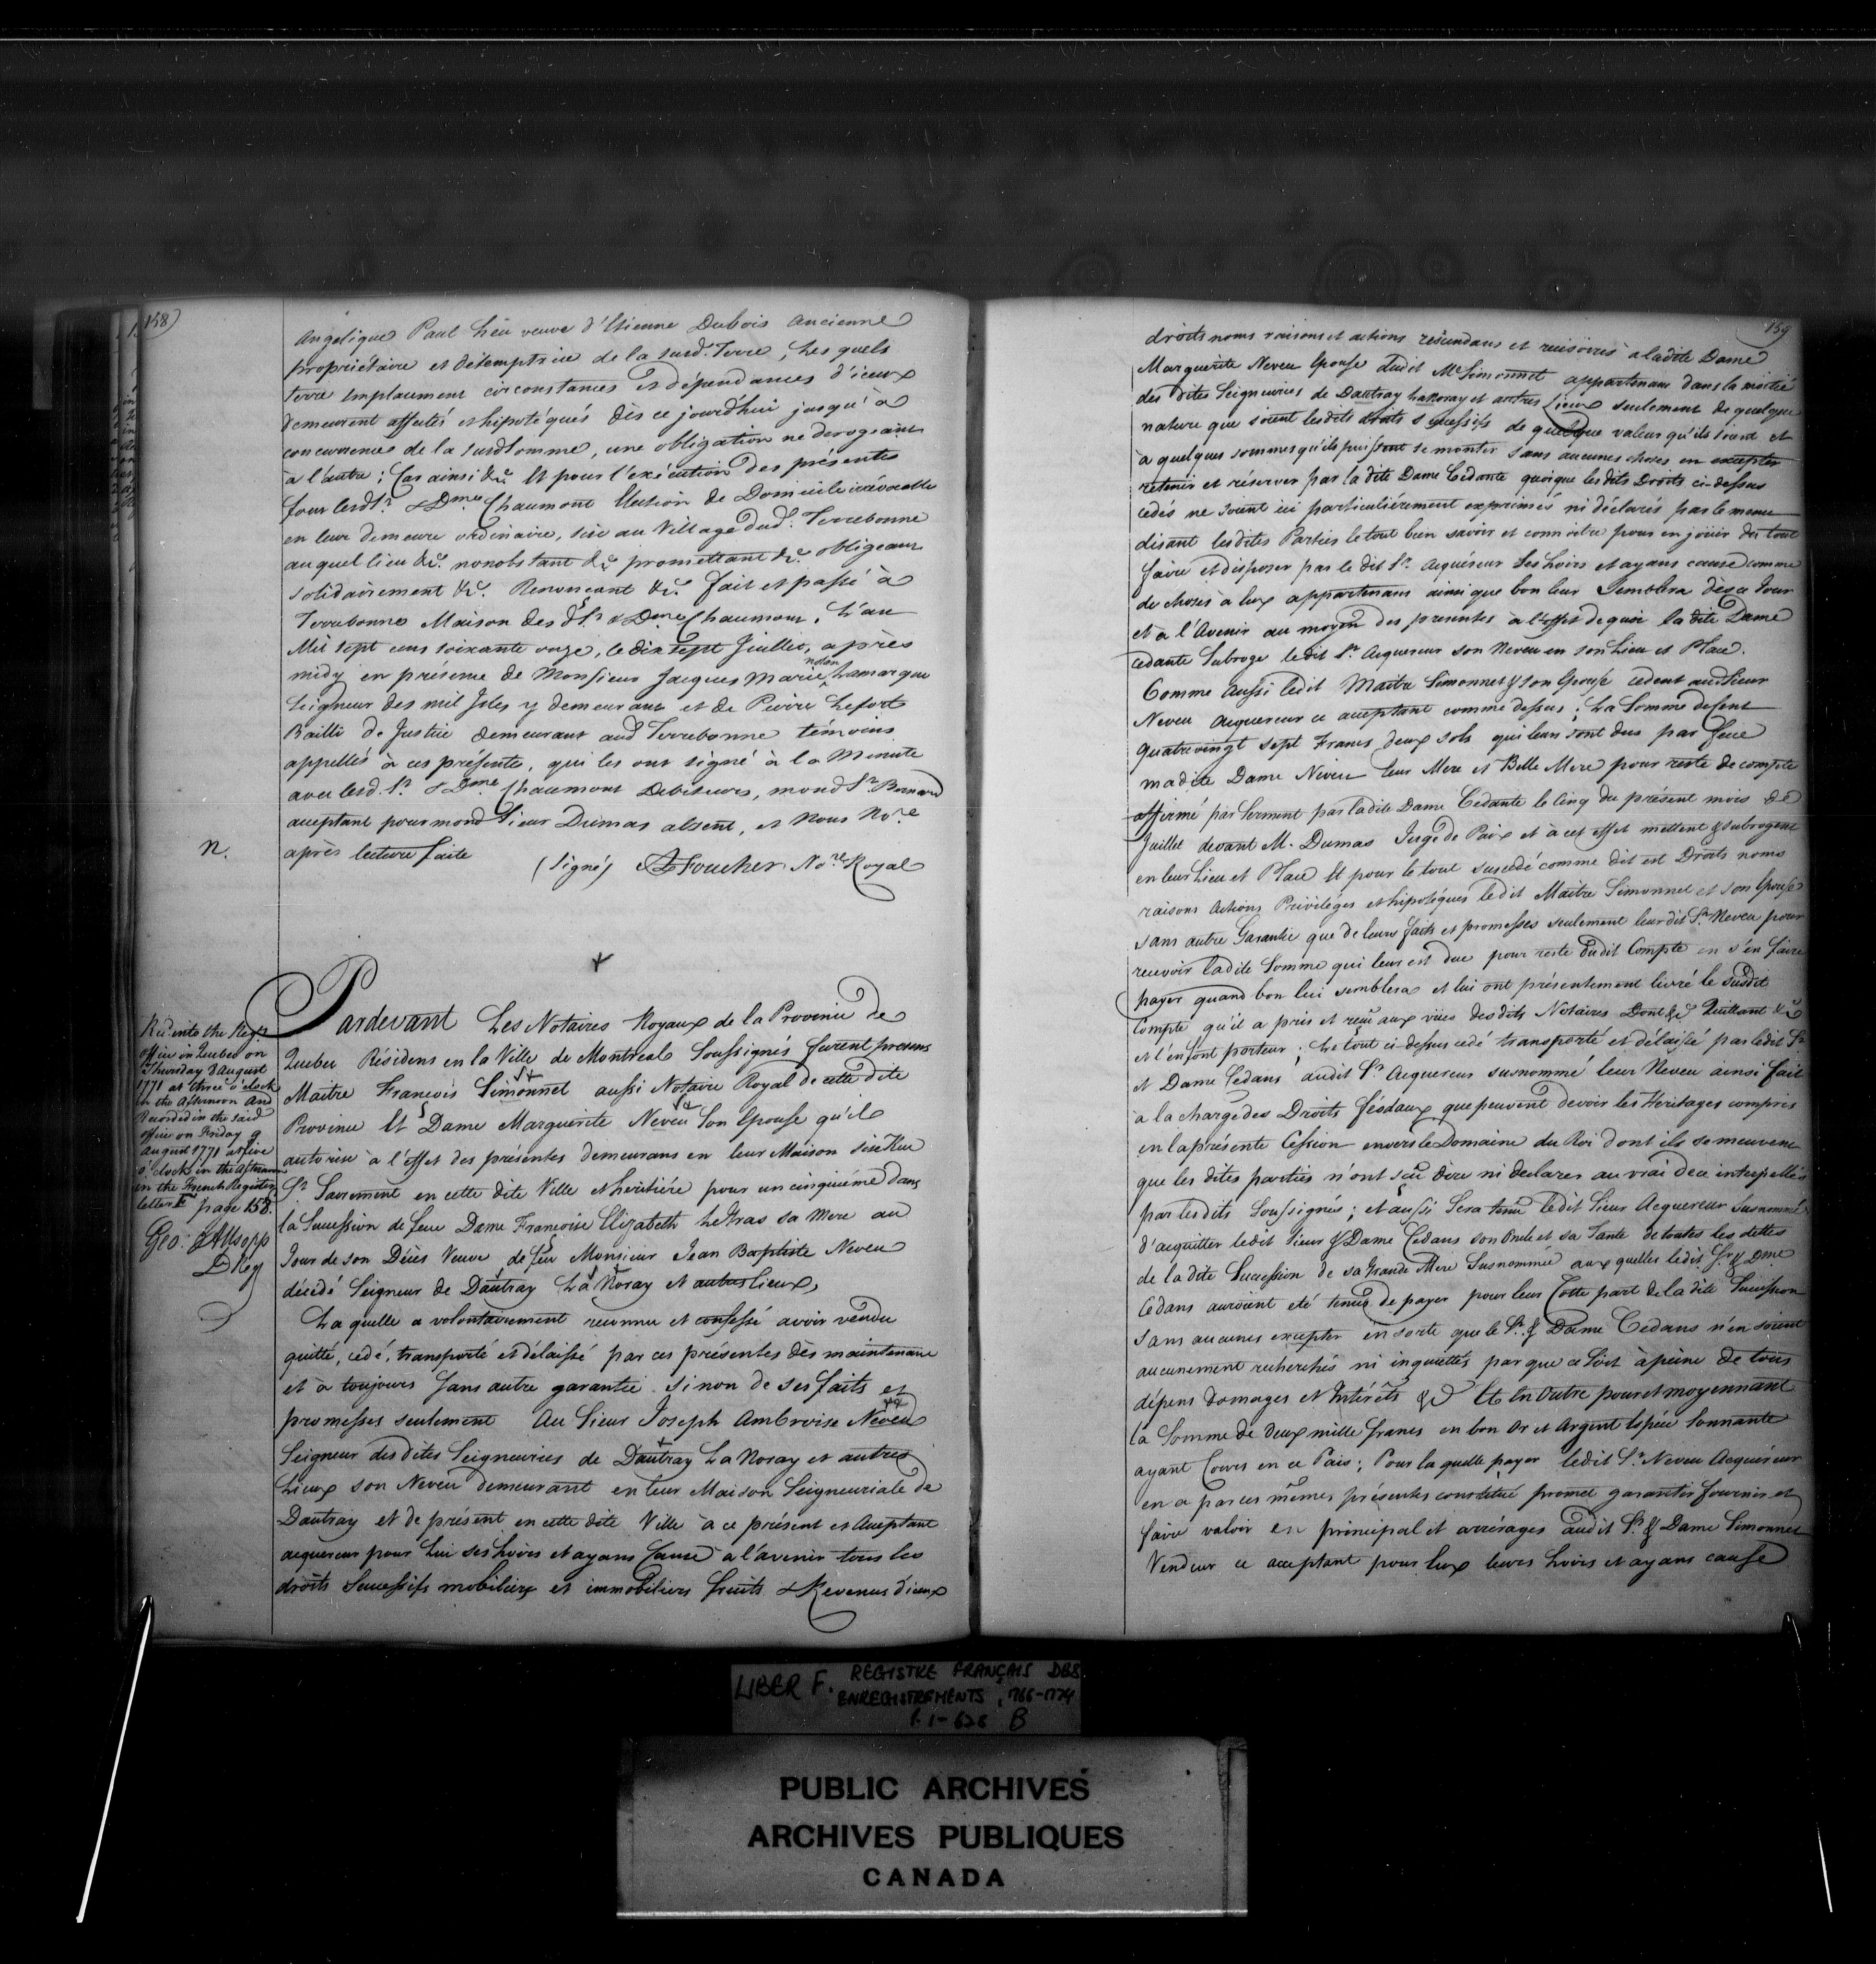 158
Angelique Paul hëu veuve d'Etienne Dubois Ancienne
propriétaire et détemptrice de la susd. Terre, les quels
terre emplacement circonstances et dépendances d'iceux
demeurent affectés et hipotéqués dès ce jourdhui jusqu'à
concurrence de la susd somme, une obligation ne derogeant
à l'autre; Car ainsi &c. Et pour l'exécution des présentes
font lesd Sr. & Dme Chaumont Election de Domicile irrévocable
en leur demeure ordinaire, sise au Village dud. Terrebonne
auquel lieu &c. nonobstant &c promettant &c. obligeant
solidairement &c. Renonçant &c. fait et passé à
Terrebonne Maison des d Srs & Dme Chaumont, L'an
Mil sept cens soixante onze, le dix sept Juillet, après
midy en présence de Monsieur Jacques Marie Lamarque
Seigneur des mil Isles y demeurant et de Pierre Lefort
Bailli de Justice demeurant aud Terrebonne témoins
appellés à ces présente, qui les ont signé à la Minute
avec lesd. Sr. & Dme Chaumont Debiteurs, mond Sr. Bernard
acceptant pour mond Sieur Dumas absent, et Nous Nore
n.
après lecture faite
(signé) Foucher Nore Royal
Recd. into the Regr.
office in Quebec on
Thursday 8 August
1771 at three o'clock
in the Afternoon And
Recorded in the said
office on Friday 9
August 1771 at five
o'clock in the Afternoon
in the French Register
letter F page 158.
Geo: Allsopp
D Reg
Pardevant Les Notaires Royaux de la Province de
Quebec Résidens en la Ville de Montreal Soussignés furent presens
Maitre François Simonnet aussi Notaire Royal de cette dite
Province Et Dame Marguerite Neveu Son Epouse qu'il
autorise à l'effet des présentes demeurans en leur Maison sise Rue
St Sacrement en cette dite Ville et heritiére pour un cinquiéme dans
la Succession de feue Dame Françoise Elizabeth LeGras sa Mere au
Jour de son Décès Veuve de feu Monsieur Jean Baptiste Neveu
décédé Seigneur de Dautray La Noray et autres lieux,
La quelle a volontairement reconnu et confessé avoir vendu
quitté, cédé, transporté et délaissé par ces présentes dès maintenant
et à toujours Sans autre garantie sinon de ses faits et
promesses seulement Au Sieur Joseph Ambroise Neveu
Seigneur des dites Seigneuries de Dautray La Noray et autres
Lieux son Neveu demeurant en leur Maison Seigneuriale de
Dautray et de présent en cette dite Ville à ce présent et Acceptant
acquereur pour Lui ses hoirs et ayans Cause à l'avenir tous les
droits Successifs mobiliers et immobiliers fruits & Revenus d'iceux
159
droits noms raisons et actions rescindans et rescisoires à ladite Dame
Marguerite Neveu Epouse dudit Me Simonnet appartenans dans la moitié
des dites Seigneuries de Dautray LaNoray et autres Lieux seulement de quelque
nature que soient lesdits droits successifs de quelque valeur qu'ils soient et
à quelques sommes qu'ils puissent se monter sans aucunes choses en excepter
retenir et réserver par la dite Dame Cédante quoique les dits Droits ci-dessus
cedés ne soient ici particuliérement exprimés ni déclarés par le menu
disant lesdites Parties le tout bien savoir et connoitre pour en jouir du tout
faire et disposer par le dit Sr. Acquéreur Ses hoirs et ayans cause comme
de choses à Eux appartenans ainsi que bon leur Semblera dès ce Jour
et à l'Avenir au moyen des presentes à l'effet de quoi la dite Dame
cedante Subroge ledit Sr. Acquereur son Neveu en son Lieu et Place.
Comme aussi ledit Maitre Simonnet & son Epouse cedent audSieur
Neveu Acquereur ce acceptant comme dessus; La Somme de Cent
quatrevingt sept Francs deux sols qui leurs sont dus par feue
madite Dame Neveu leur Mere et Belle Mere pour reste de compte
affirmé par Serment par ladite Dame Cedante le cinq du présent mois de
Juillet devant M. Dumas Juge de Paix et à cet effet mettent & subrogent
en leur Lieu et Place Et pour le tout suscedé comme dit est Droits noms
raisons Actions Priviléges et hipotéques ledit Maitre Simonnet et son Epouse
sans autre Garantie que de leurs faits et promesses seulement leur dit Sr. Neveu pour
recevoir ladite Somme qui leur est due pour reste dudit Compte en s'en faire
payer quand bon lui semblera et lui ont présentement livré le susdit
Compte qu'il a pris et reçu aux vües des dits Notaires Dont &c Quittant &c
et l'en font porteur; Le tout ci-dessus cedé transporté et délaissé par ledit Sr
et Dame Cedans audit Sr. Acquereur susnommé leur Neveu ainsi fait
à la charge des Droits féodaux que peuvent devoir les Heritages compris
en la présente Cession envers le Domaine du Roi dont ils se meuvent
que les dites parties n'ont scû dire ni declarer au vrai de ce interpellés
par les dits Soussignés; et aussi Sera tenu ledit Sieur Acquereur Susnommé
d'acquitter ledit Sieur & Dame Cedans son Oncle et sa Tante de toutes les dettes
de la dite Succession de sa Grande Mere Susnommée aux quelles ledit Sr. & Dme
Cedans auroient eté tenus de payer pour leur Cotte part de la dite Succession
sans aucunes excepter en sorte que le Sr. & Dame Cedans n'en soient
aucunement recherchés ni inquiettés par que ce soit à peine de tous
dépens domages et Intérêts &c Et En outre pour et moyennant
la Somme de deux mille francs en bon Or et Argent Espéce Sonnante
ayant Cours en ce Païs; Pour la quelle payer ledit Sr. Neveu Acquéreur
en a par ces mêmes présentes constitué promet garantir fournir et
faire valoir en principal et arrérages audit Sr. & Dame Simonnet
Vendeur ce acceptant pour Eux leurs hoirs et ayans cause
LIBER F. REGISTRE FRANÇAIS DES
ENREGISTREMENTS, 1766-1774
f. 1-626 B
PUBLIC ARCHIVES
ARCHIVES PUBLIQUES
CANADA